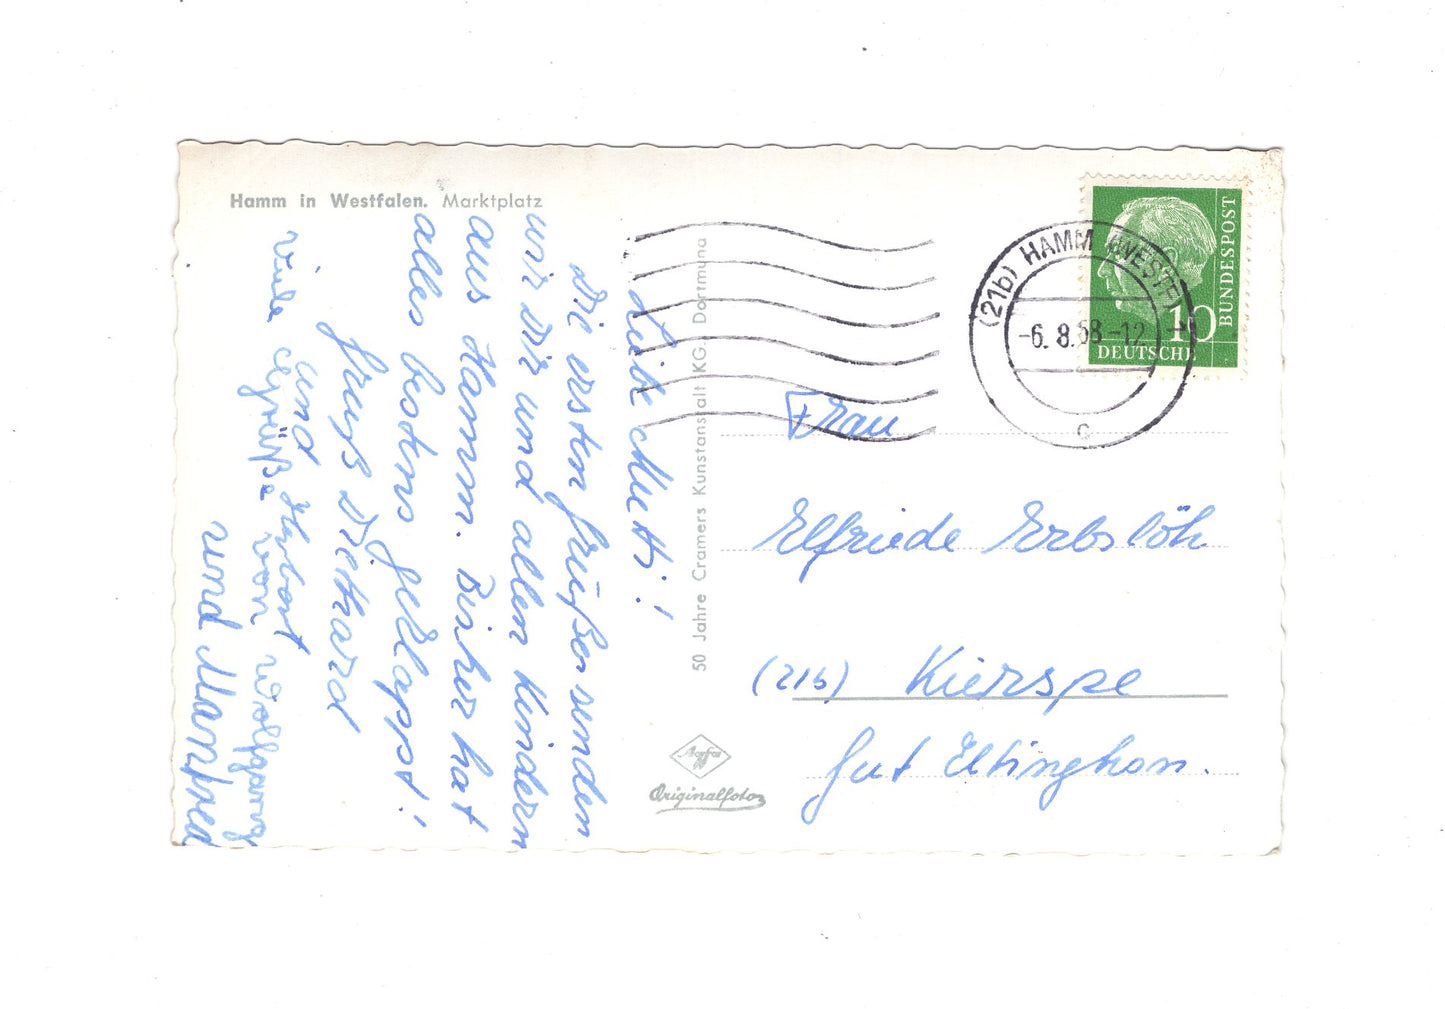 Hamm in Westfalen. Marktplatz
Liebe Mutti!
Die ersten Grüße senden
wir Dir und allen Kindern
aus Hamm. Bisher hat
alles bestens geklappt!
Gruß Diethard
und Herbert
Viele Grüße von Wolfgang
und Manfred
50 Jahre Cramers Kunstanstalt KG. Dortmund
Agfa
Originalfoto
(21b) HAMM (WESTF)
-6. 8.58-12
c
10
DEUTSCHE
BUNDESPOST
Frau
Elfriede Erbslöh
(21b) Kierspe
Gut Eltinghsn.